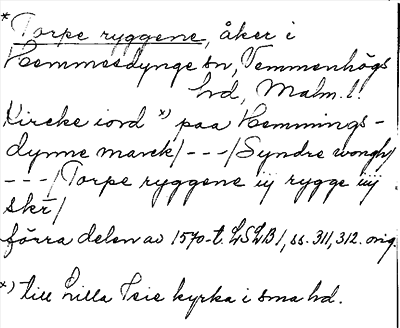 * Torpe ryggene, åker i
Hemmesdynge sn, Vemmenhögs
hd, Malm.l.
Kircke iord *) paa Hemmings-
dynne marck/---/Syndre wongh/
---/Torpe ryggene iij rygge iiij
skr/
förra delen av 1570-t. LSLB1, ss. 311, 312. orig.
*) till Lilla Isie kyrka i sma hd.